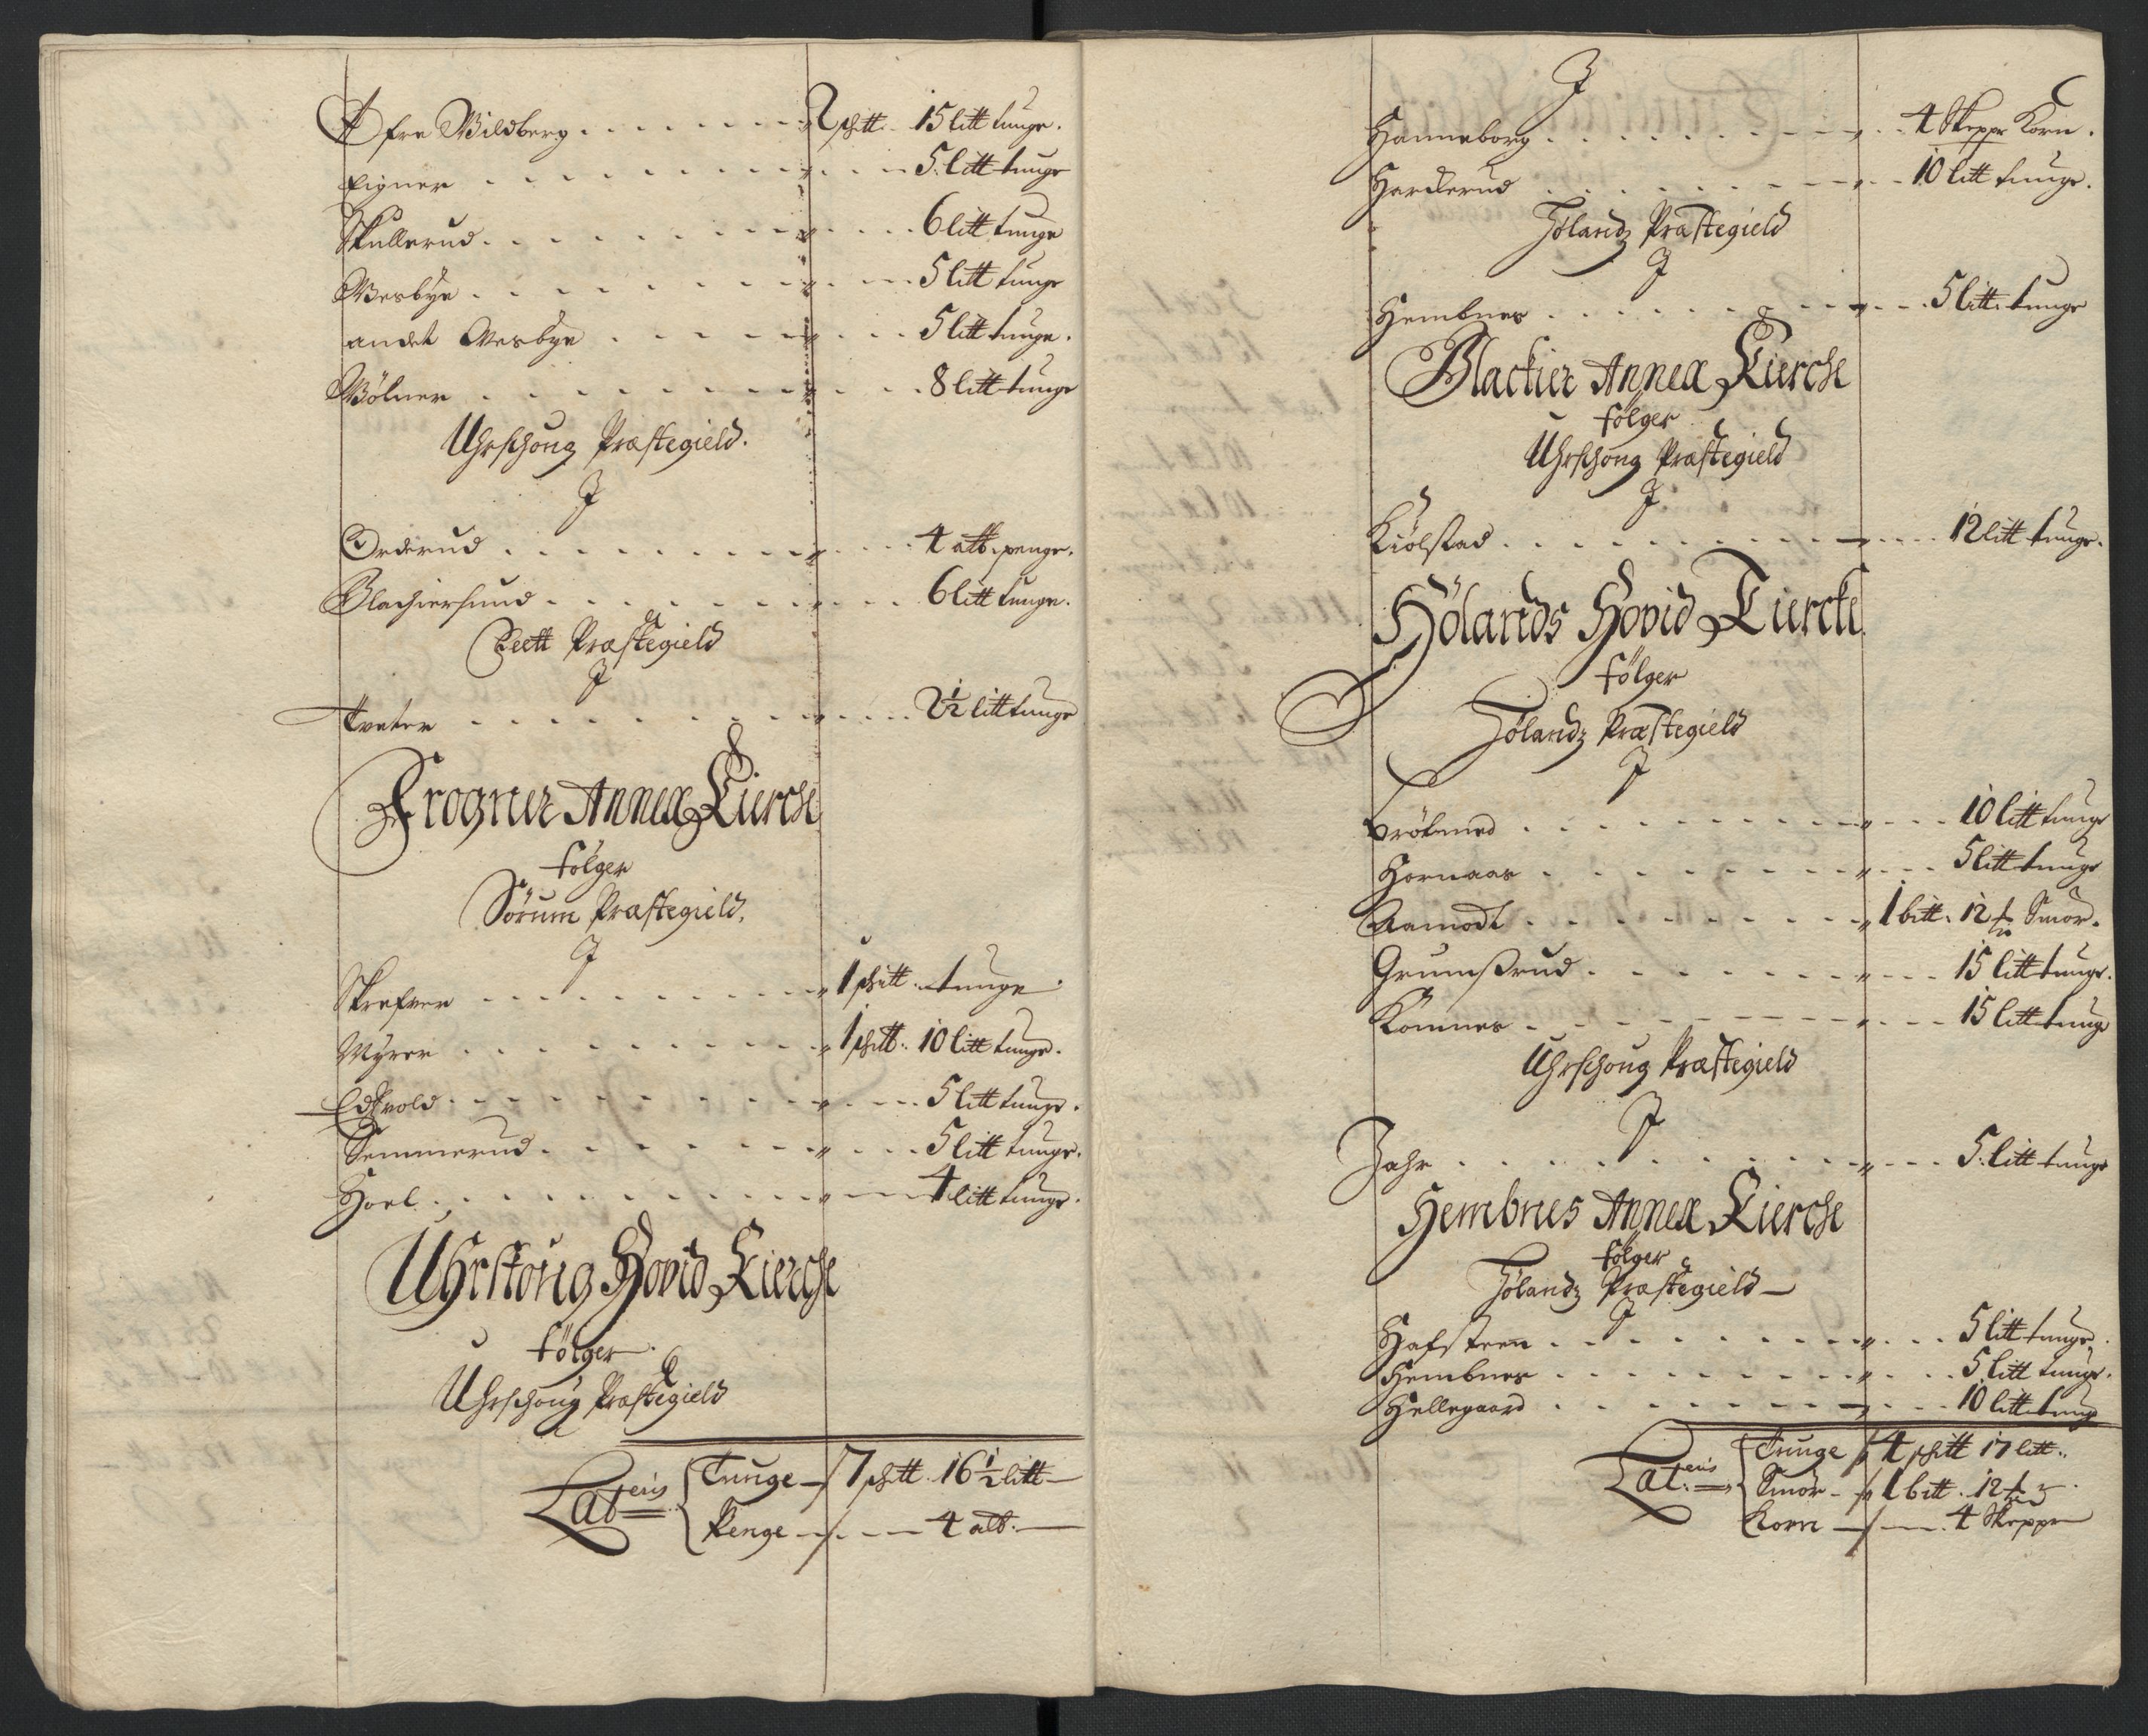 Øfre Wildberg 2 schtt 15 litt tunge.
Eigner 5 litt tunge
Skullerud 6 litt tunge
Wesbye 5 litt tunge
andet Wesbye 5 litt tunge.
Wølner 8 litt tunge
Uhrschoug Præstegield.
J
Orderud 4 alb. penge.
Blachiersund 6 litt tunge.
Feett Præstegield
J
Tveter 2½ litt tunge
Frogner Annex Kierche
følger
Sørum Præstegield.
J
Skrefver 1 schtt. tunge.
Myrer 1 schtt. 10 litt tunge.
Edtvold 5 litt tunge.
Semmerud 5 litt tunge.
Hoel 4 litt tunge.
Uhrskoug Hovid Kierche
følger
Uhrschoug Præstegield
Lateris Tunge 7 schtt. 16½ litt
Penge 4 alb.
J
Hanneborg 4 Skeppe Korn.
Harkerud 10 litt tunge.
Hølandz Præstegield
J
Hembnes 5 litt. tunge
Blackier Annex Kierche
følger
Uhrschoug Præstegield
J
Kiølstad 12 litt tunge.
Hølands Hovid Kiercke
følger
Hølandz Præstegield
J
Brøtmed 10 litt tunge
Hornaas 5 litt tunge
Aamodt 1 bitt. 12 Smør.
Grumsrud 15 litt tunge.
Kømnes 15 litt tunge
Uhrschoug Præstegield
J
Jahr 5 litt tunge
Hembnes Annex Kierche
følger
Hølandz Præstegield
J
Hafsteen 5 litt tunge.
Hembnes 5 litt tunge.
Hellegaard 10 litt tunge
Lateris Tunge 4 schtt 17 litt.
Smør 1 bitt. 12
Korn 4 Skeppe